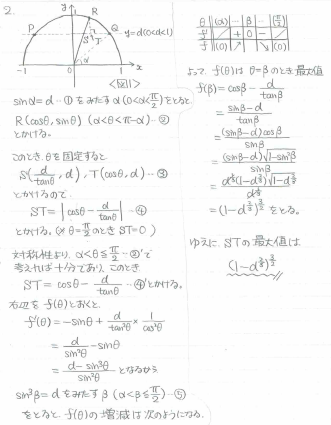 2.
y
R
P
Q
y=d (0<d<1)
S
T
α
-1
0
1
x
<図1>
sinα=d …① をみたす α(0<α<π/2)をとると
R(cosθ, sinθ) (α<θ<π-α) …②
とかける。
このとき、θを固定すると
S(d/tanθ, d), T(cosθ, d) …③
とかけるので
ST=|cosθ-d/tanθ| …④
とかける。(※θ=π/2のとき ST=0)
対称性より、α<θ≦π/2 …②'で
考えれば十分であり、このとき
ST=cosθ-d/tanθ …④'とかける。
右辺を f(θ)とおくと、
f'(θ)=-sinθ+d/tan²θ×1/cos²θ
=d/sin²θ-sinθ
=(d-sin³θ)/sin²θ となるから
sin³β=d をみたす β(α<β≦π/2) …⑤
をとると、f(θ)の増減は次のようになる。
θ (α) … β … (π/2)
f' + 0 -
f (0) ↗ ↘ (0)
よって f(θ)は θ=βのとき最大値
f(β)=cosβ-d/tanβ
=(sinβ-d)/tanβ
=(sinβ-d)cosβ/sinβ
=(sinβ-d)√(1-sin²β)/sinβ
=d^(1/3)(1-d^(2/3))√(1-d^(2/3))/d^(1/3)
=(1-d^(2/3))^(3/2) をとる。
ゆえに、STの最大値は
(1-d^(2/3))^(3/2)